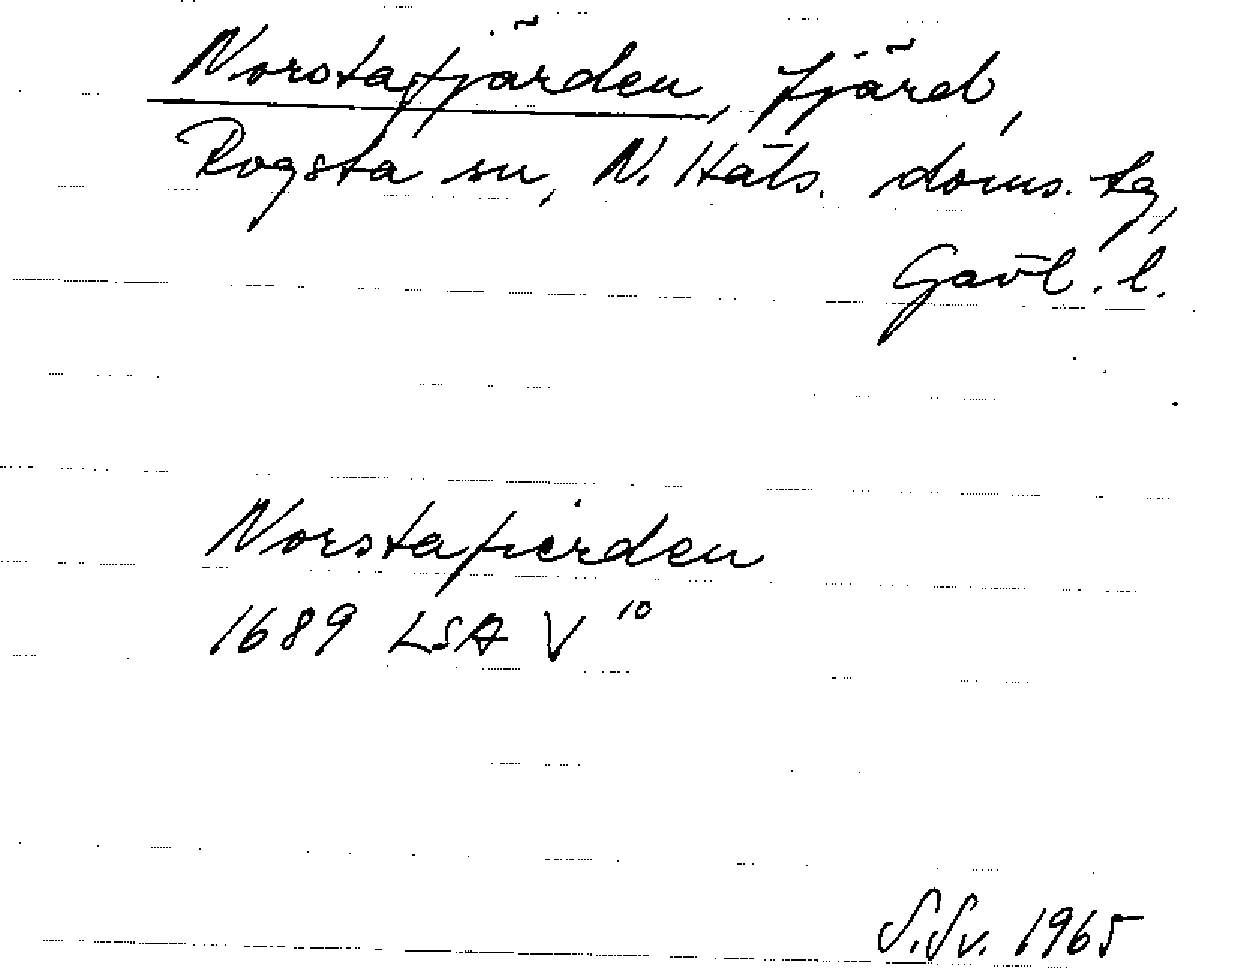 Norstafjärden, fjärd,
Rogsta sn, N. Häls. doms. tg,
Gävl. l.
Norstafierden
1689 LSA V 10
S. Sv. 1965